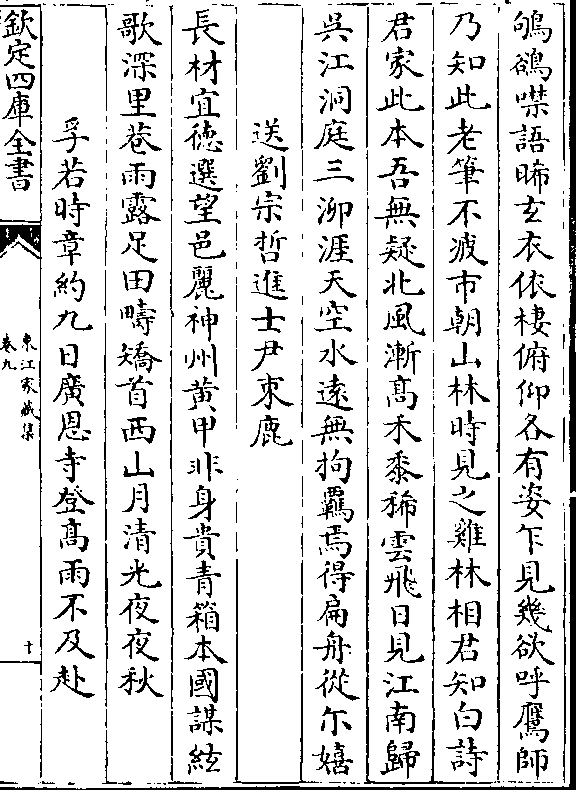 鴝鵒噤語晞玄衣依棲俯仰各有姿乍見幾欲呼鷹師
乃知此老筆不疲市朝山林時見之雞林相君知白詩
君家此本吾無疑北風漸髙禾黍稀雲飛日見江南歸
吳江洞庭三泖涯天空水逺無拘羈焉得扁舟從尒嬉
送劉宗哲進士尹束鹿
長材宜徳選望邑麗神州黄甲非身貴青箱本國謀絃
歌深里巷雨露足田疇矯首西山月清光夜夜秋
孚若時章約九日廣恩寺登髙雨不及赴
欽定四庫全書
東江家藏集
卷九
十